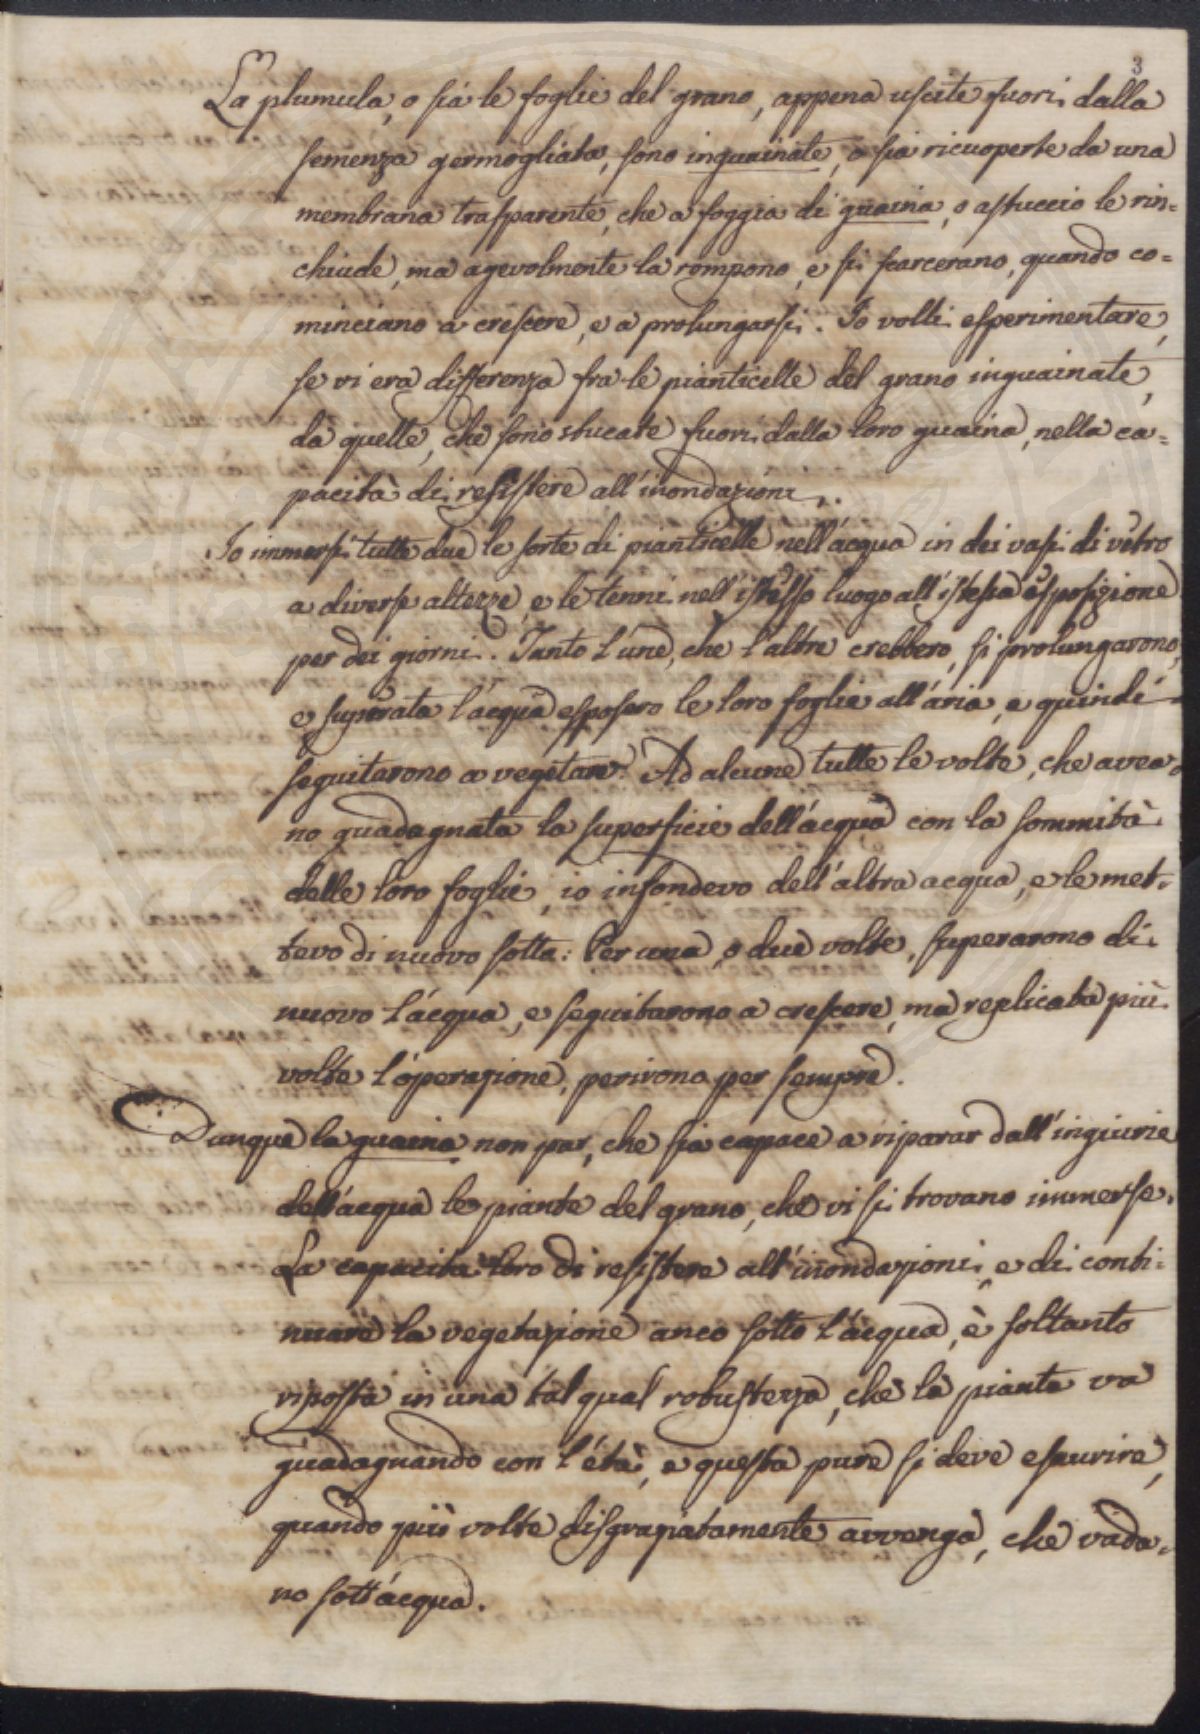 3
La plumula, o sia le foglie del grano, appena uscite fuori dalla
semenza germogliata, sono inguainate, o sia ricuoperte da una
membrana trasparente, che a foggia di guaina, o astuccio le rin=
chiude, ma agevolmente la rompono, e si scarcerano, quando co=
minciano a crescere, e a prolungarsi. Io volli esperimentare,
se vi era differenza fra le pianticelle del grano inguainate,
da quelle, che sono sbucate fuori dalla loro guaina, nella ca=
pacità di resistere all'inondazioni.
Io immersi tutte due le sorte di pianticelle nell'acqua in dei vasi di vetro
a diverse altezze, e le tenni nell'istesso luogo all'istessa esposizione
per dei giorni. Tanto l'une, che l'altre crebbero, si prolungarono,
e superata l'acqua esposero le loro foglie all'aria, e quindi
seguitarono a vegetare. Ad alcune tutte le volte, che avea=
no guadagnata la superficie dell'acqua con la sommità
delle loro foglie, io infondevo dell'altra acqua, e le met=
tevo di nuovo sotto: Per una, o due volte, superarono di
nuovo l'acqua, e seguitarono a crescere, ma replicata più
volte l'operazione, perirono per sempre.
Dunque la guaina non par, che sia capace a riparar dall'ingiurie
dell'acqua le piante del grano, che vi si trovano immerse.
La capacità loro di resistere all'inondazioni, e di conti=
nuare la vegetazione anco sotto l'acqua, è soltanto
riposta in una tal qual robustezza, che la pianta va
guadagnando con l'età, e questa pure si deve esaurire,
quando più volte disgraziatamente avvenga, che vada=
no sott'acqua.